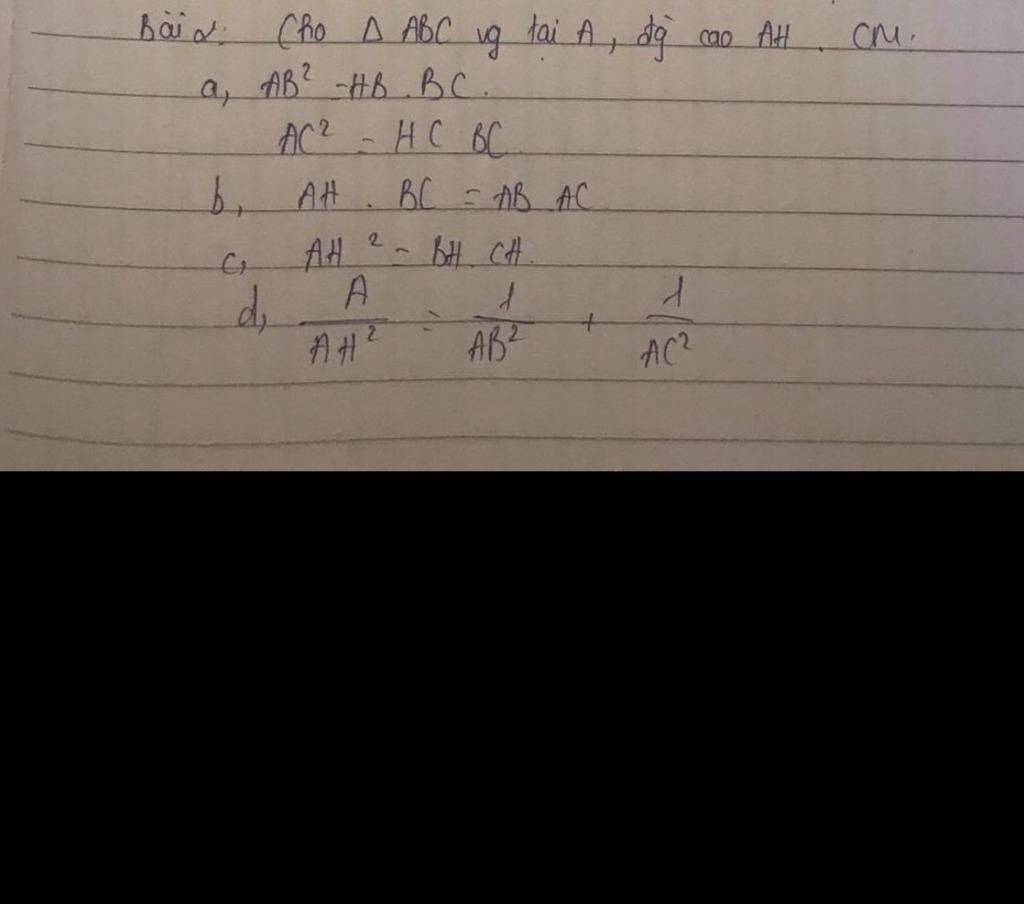 Bài 2: Cho Δ ABC vg tại A, đg cao AH. CM:
a, AB² = HB . BC.
AC² = HC BC
b, AH . BC = AB AC
c, AH² = BH. CH.
d, 1/AH² = 1/AB² + 1/AC²